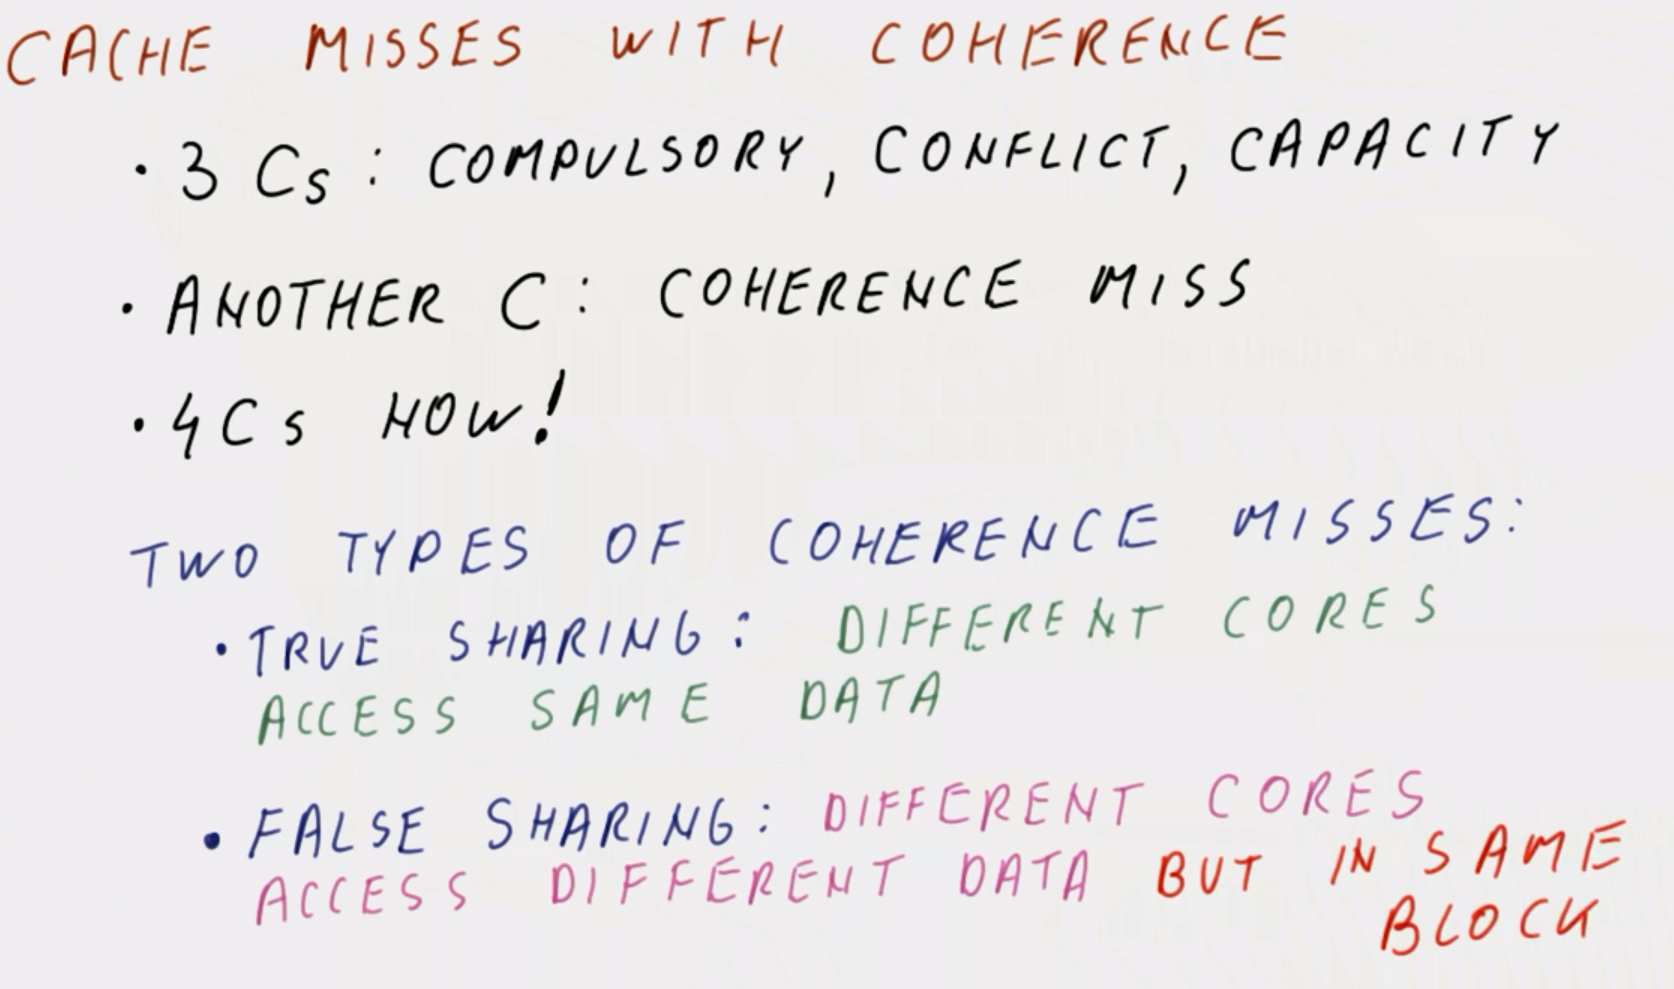 CACHE MISSES WITH COHERENCE
• 3 Cs : COMPULSORY, CONFLICT, CAPACITY
• ANOTHER C : COHERENCE MISS
• 4 Cs NOW!
TWO TYPES OF COHERENCE MISSES:
• TRUE SHARING: DIFFERENT CORES
ACCESS SAME DATA
• FALSE SHARING: DIFFERENT CORES
ACCESS DIFFERENT DATA BUT IN SAME
BLOCK